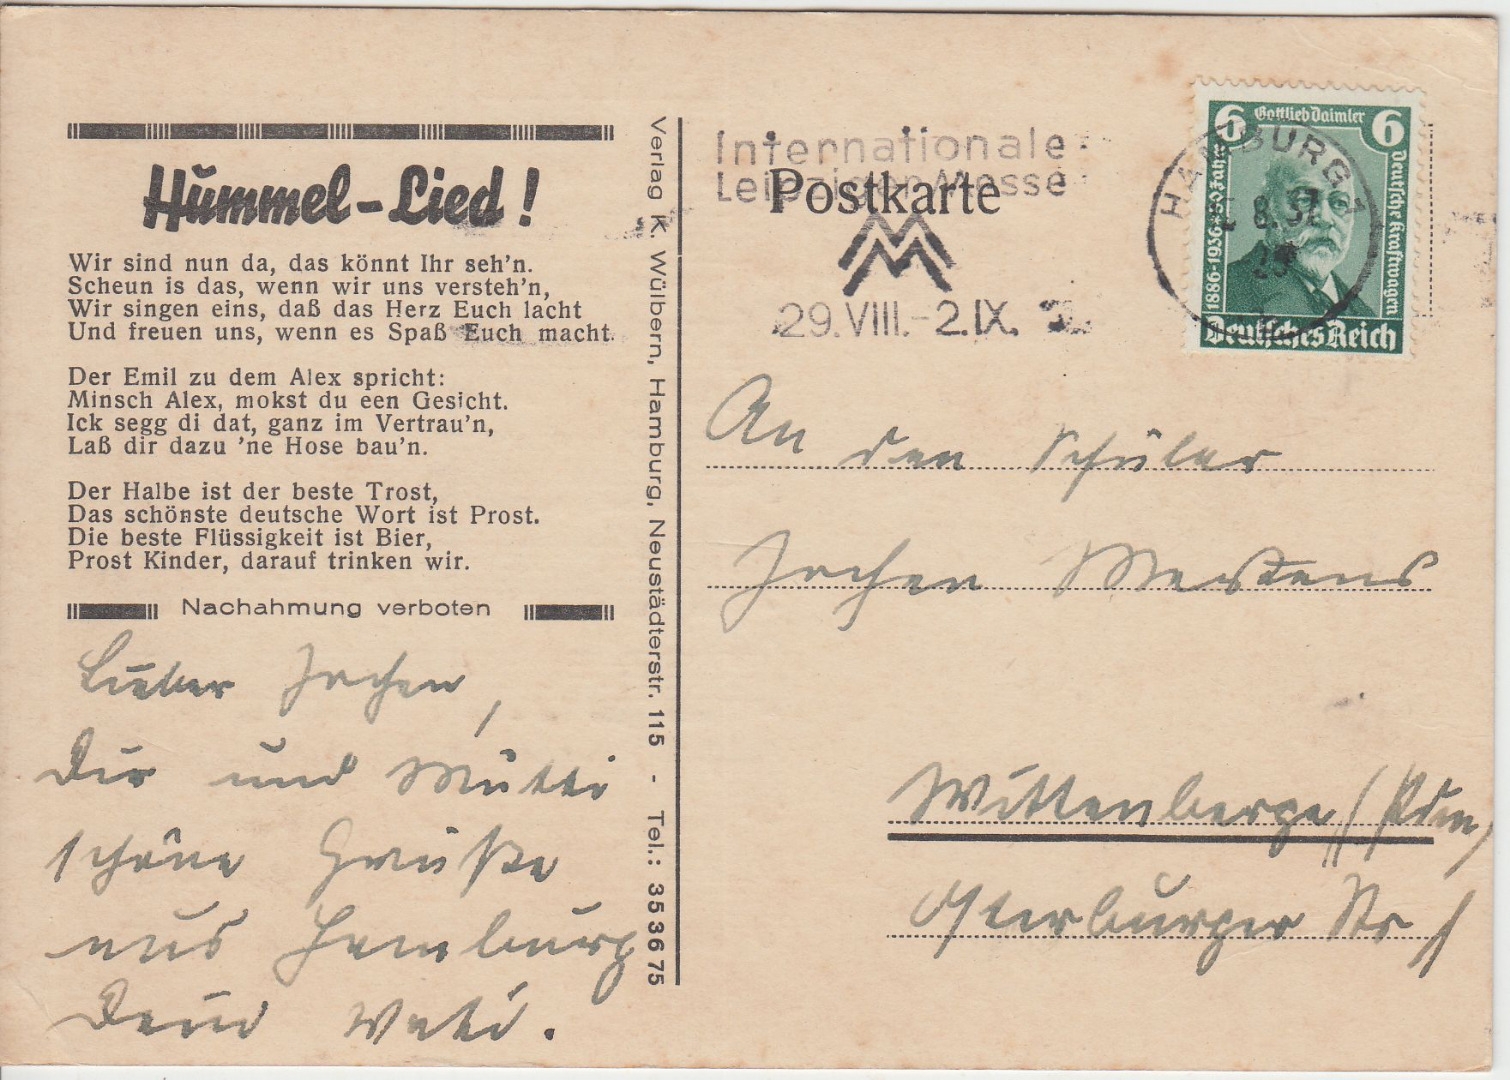 Hummel-Lied!
Wir sind nun da, das könnt Ihr seh'n.
Scheun is das, wenn wir uns versteh'n,
Wir singen eins, daß das Herz Euch lacht
Und freuen uns, wenn es Spaß Euch macht.
Der Emil zu dem Alex spricht:
Minsch Alex, mokst du een Gesicht.
Ick segg di dat, ganz im Vertrau'n,
Laß dir dazu 'ne Hose bau'n.
Der Halbe ist der beste Trost,
Das schönste deutsche Wort ist Prost.
Die beste Flüssigkeit ist Bier,
Prost Kinder, darauf trinken wir.
Nachahmung verboten
Lieber Jochen,
Dir und Mutti
schöne Grüße
aus Hamburg
Dein Vati.
Verlag K. Wülbern, Hamburg, Neustädterstr. 115 - Tel.: 35 36 75
Internationale
Leipziger Messe
Postkarte
29.VIII.-2.IX.
HAMBURG 1
8.37
6 Gottlieb Daimler 6
1886-1936 50 Jahre
Deutsche Kraftwagen
Deutsches Reich
An den Schüler
Jochen Mertens
Wittenberge/(Pdm)
Osterburger Str 1